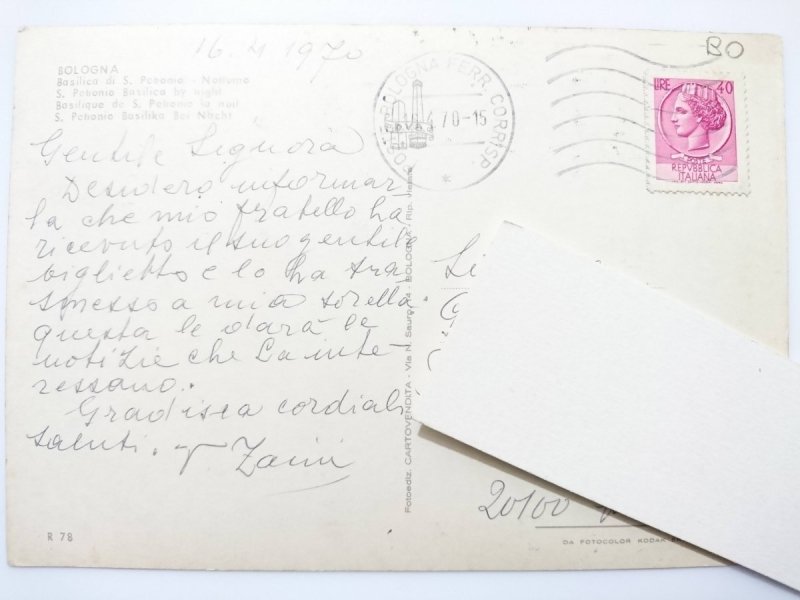 16.4.1970
BO
BOLOGNA
Basilica di S. Petronio - Notturno
S. Petronio Basilica by night
Basilique de S. Petronio la nuit
S. Petronio Basilika Bei Nacht
BOLOGNA FERR. CORRISP.
4 70-15
LIRE 40
POSTE
REPVBBLICA
ITALIANA
Gentile Signora
Desidero informar
la che mio fratello ha
ricevuto il suo gentile
biglietto e lo ha tra
smesso a mia sorella.
questa le darà le
notizie che La inte
ressano.
Gradisca cordiali
saluti.
Fotoediz. CARTOVENDITA - Via N. Sauro, 14 - BOLOGNA - Rip. Vietata
20100
R 78
DA FOTOCOLOR KODAK